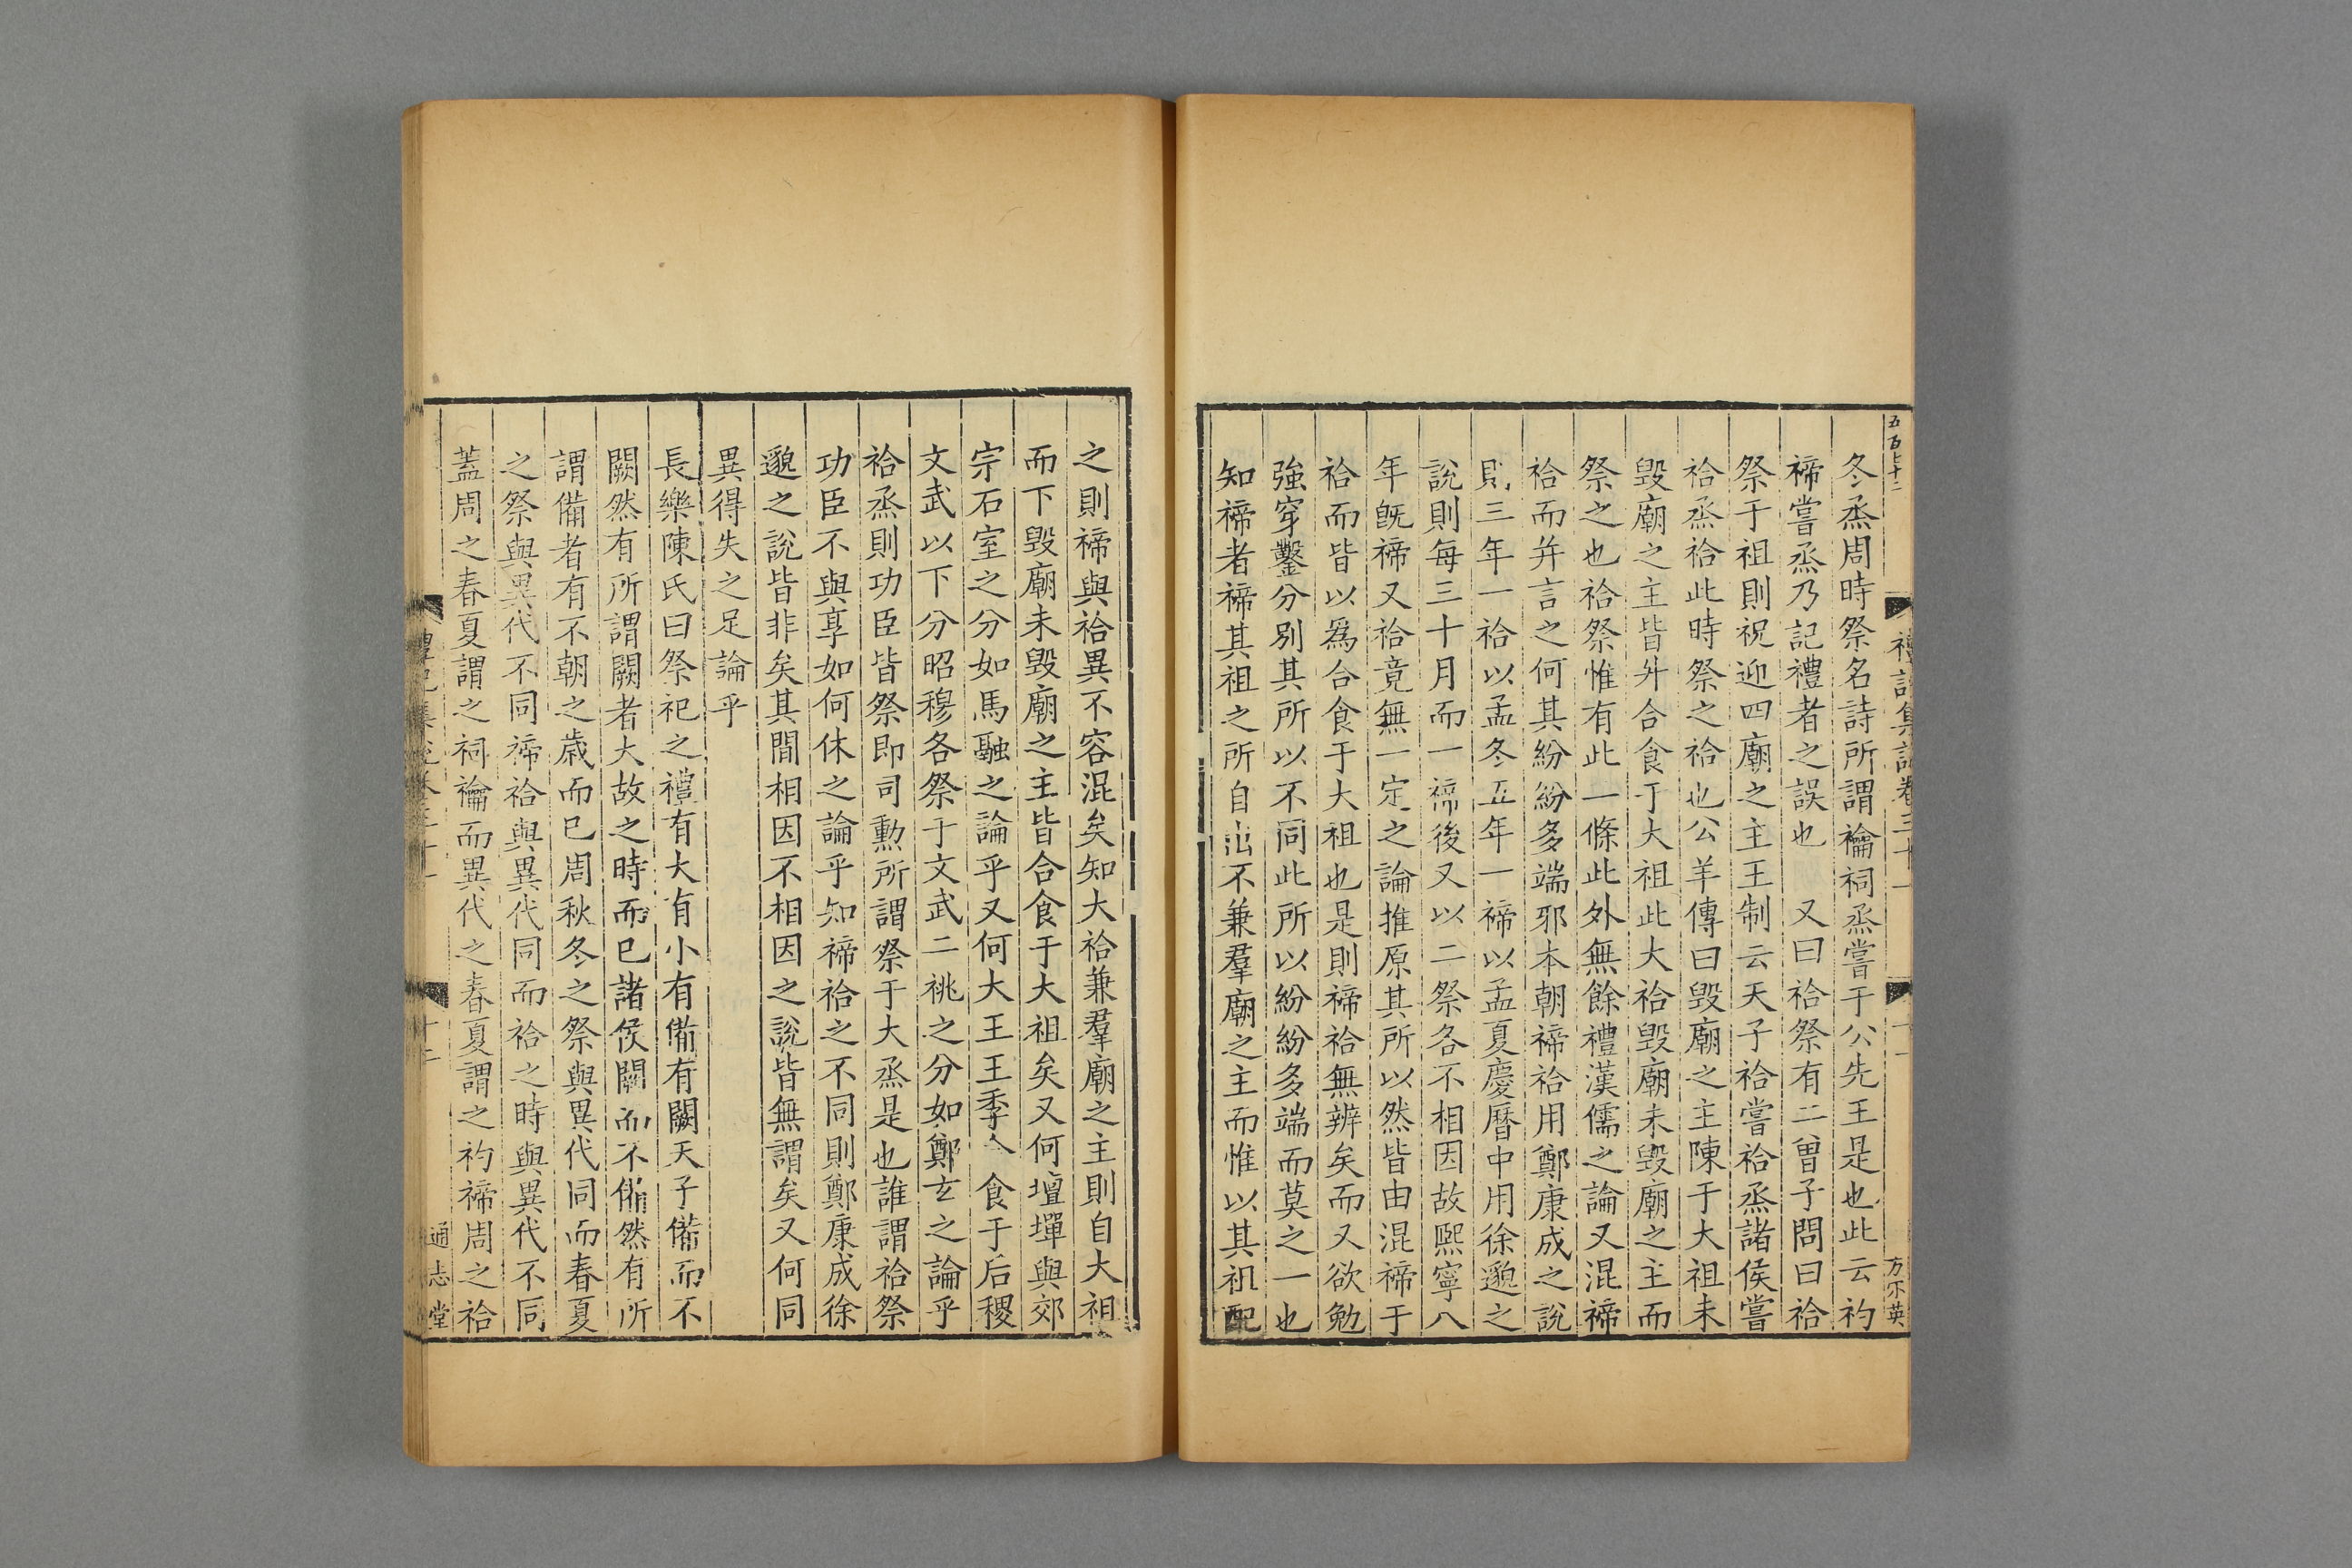 五百七十二
禮記集說卷三十一
十一
方不英
冬烝周時祭名詩所謂禴祠烝嘗于公先王是也此云礿
禘嘗烝乃記禮者之誤也　又曰祫祭有二曾子問曰祫
祭于祖則祝迎四廟之主王制云天子祫嘗祫烝諸侯嘗
祫烝祫此時祭之祫也公羊傳曰毀廟之主陳于大祖未
毀廟之主皆升合食于大祖此大祫毀廟未毀廟之主而
祭之也祫祭惟有此一條此外無餘禮漢儒之論又混禘
祫而并言之何其紛紛多端邪本朝禘祫用鄭康成之說
則三年一祫以孟冬五年一禘以孟夏慶曆中用徐邈之
說則每三十月而一禘後又以二祭各不相因故熙寧八
年旣禘又祫竟無一定之論推原其所以然皆由混禘于
祫而皆以爲合食于大祖也是則禘祫無辨矣而又欲勉
強穿鑿分別其所以不同此所以紛紛多端而莫之一也
知禘者禘其祖之所自出不兼羣廟之主而惟以其祖配
之則禘與祫異不容混矣知大祫兼羣廟之主則自大祖
而下毀廟未毀廟之主皆合食于大祖矣又何壇墠與郊
宗石室之分如馬融之論乎又何大王王季食于后稷
文武以下分昭穆各祭于文武二祧之分如鄭玄之論乎
祫烝則功臣皆祭即司勳所謂祭于大烝是也誰謂祫祭
功臣不與享如何休之論乎知禘祫之不同則鄭康成徐
邈之說皆非矣其間相因不相因之說皆無謂矣又何同
異得失之足論乎
長樂陳氏曰祭祀之禮有大有小有備有闕天子備而不
闕然有所謂闕者大故之時而已諸侯闕而不備然有所
謂備者有不朝之歲而已周秋冬之祭與異代同而春夏
之祭與異代不同禘祫與異代同而祫之時與異代不同
蓋周之春夏謂之祠禴而異代之春夏謂之礿禘周之祫
十二
通志堂